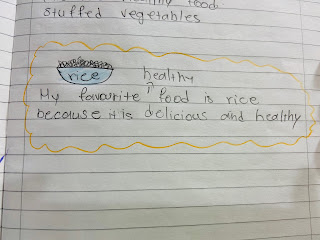 healthy food:
stuffed vegetables
rice
healthy
My favourite ^ food is rice
because it is delicious and healthy